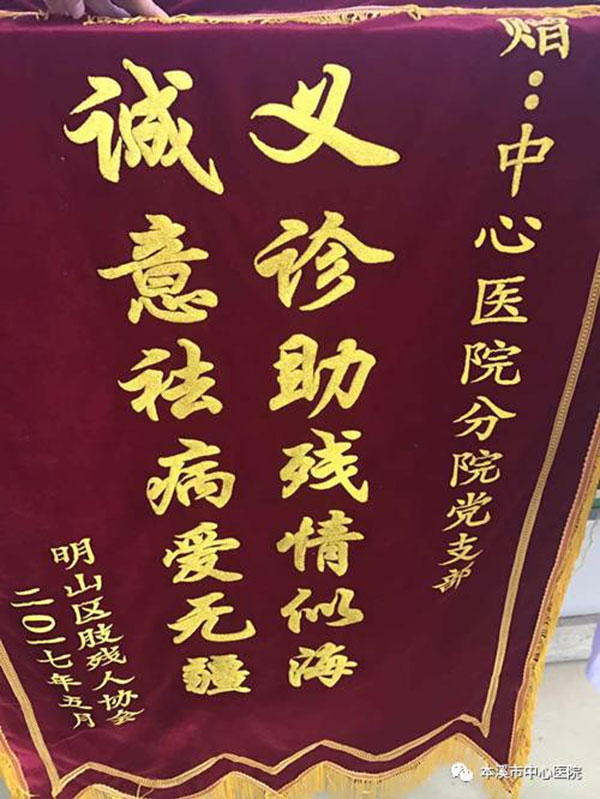 赠：中心医院分院党支部
义诊助残情似海
诚意祛病爱无疆
明山区肢残人协会
二〇一七年五月
本溪市中心医院